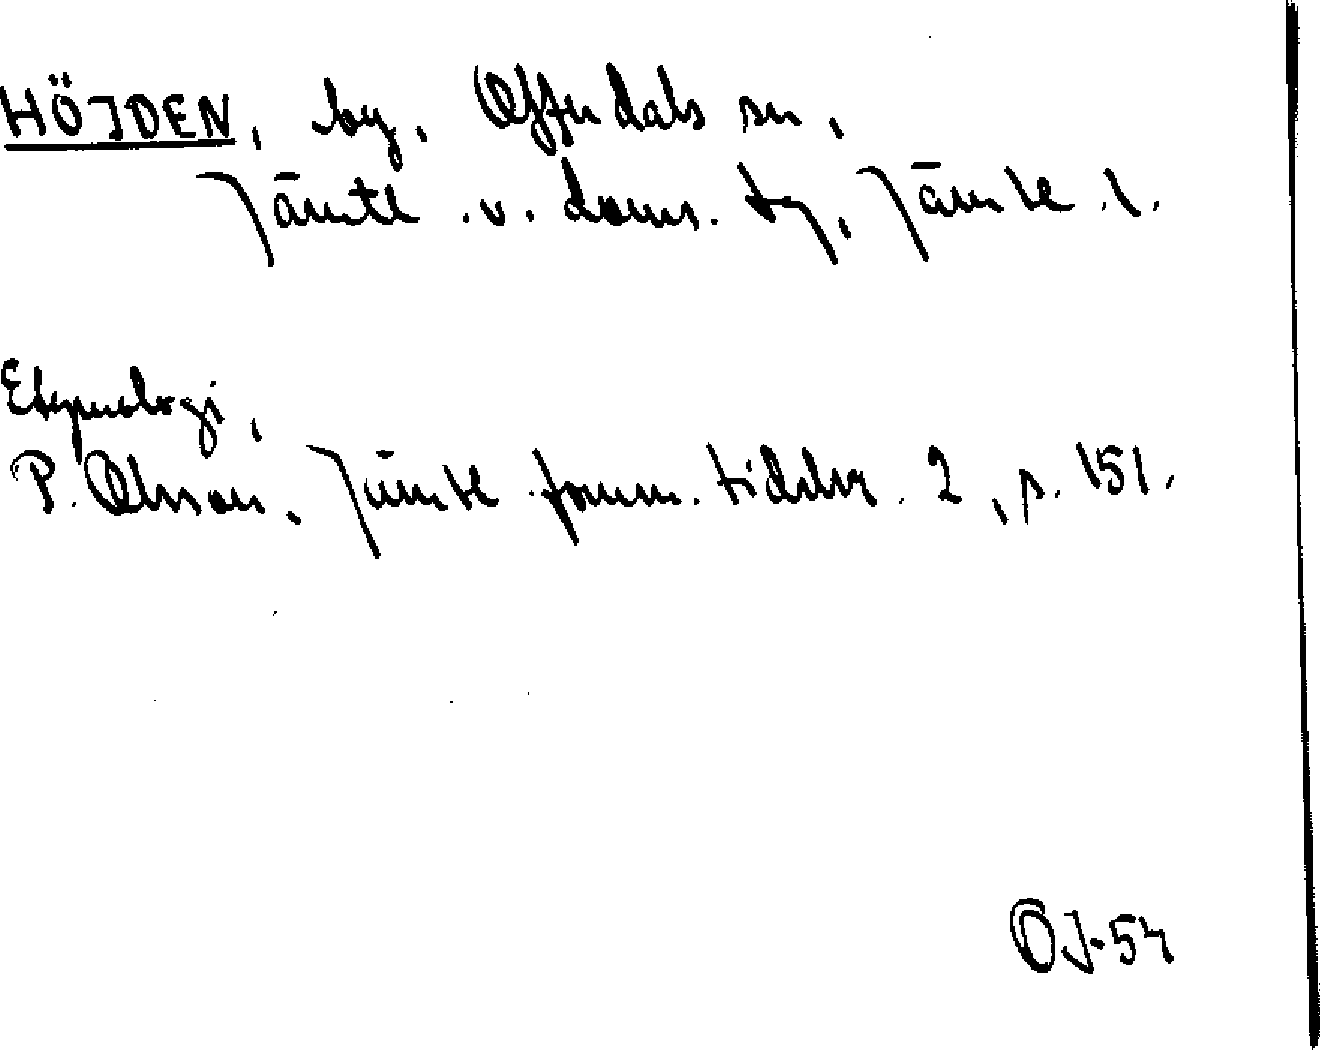 HÖJDEN, by, Offerdals sn,
Jämtl. v. doms. tg, Jämtl. l.
Etymologi,
P. Olsson, Jämtl. fornm. tidskr. 2, s. 151.
OJ-54